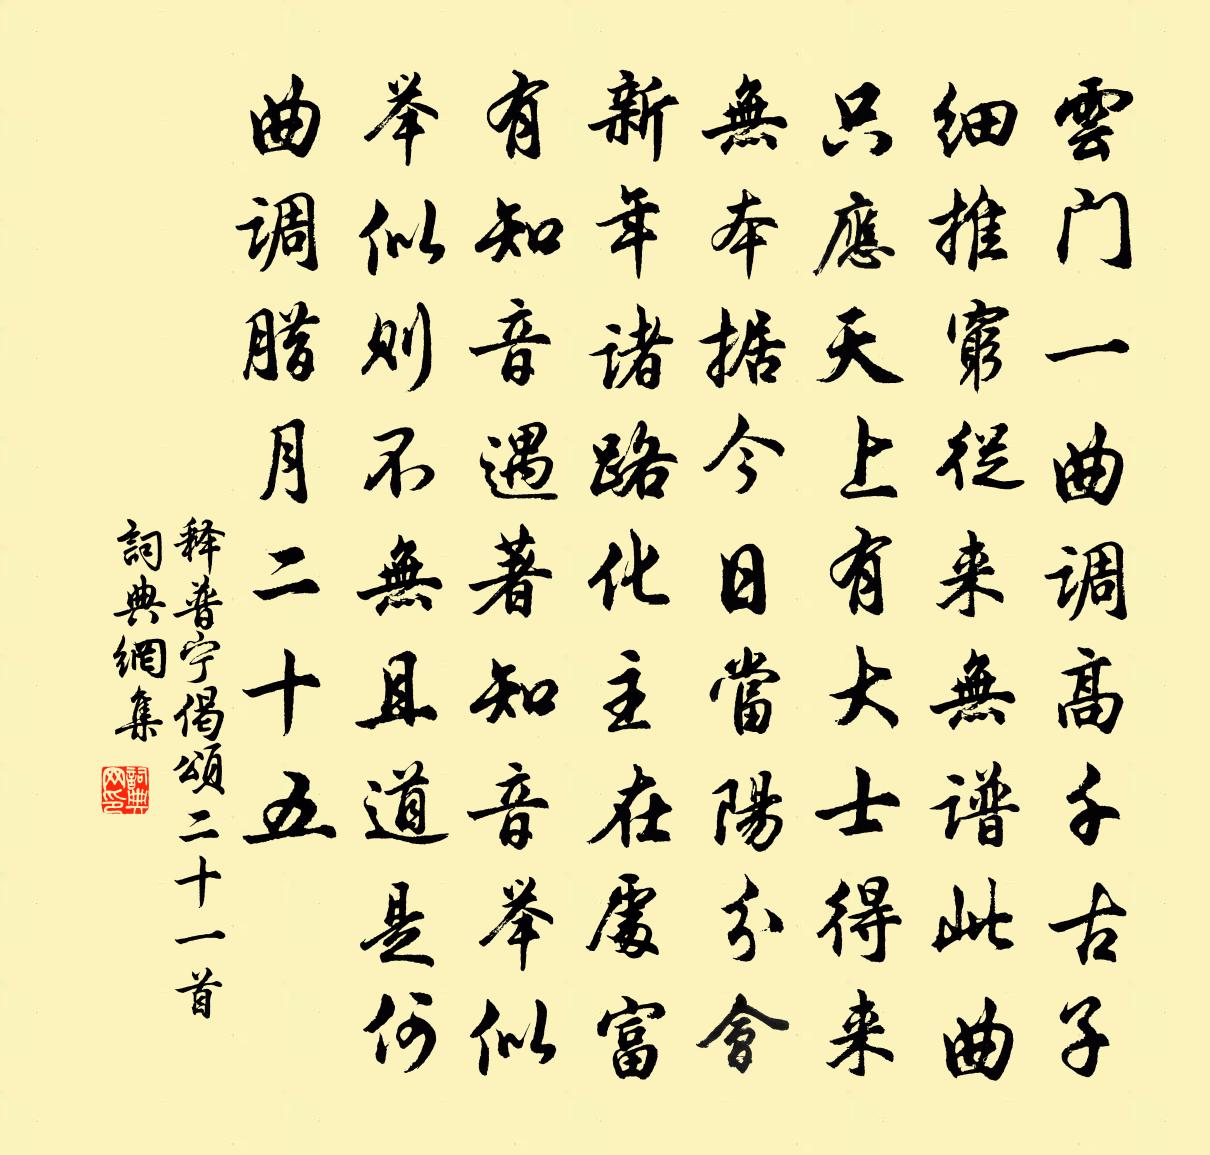 雲门一曲调高千古子
细推窮從来無谱此曲
只應天上有大士得来
無本据今日當陽分會
新年诸路化主在處富
有知音遇著知音举似
举似则不無且道是何
曲调腊月二十五
释普宁偈頌二十一首
詞典網集
詞典网印